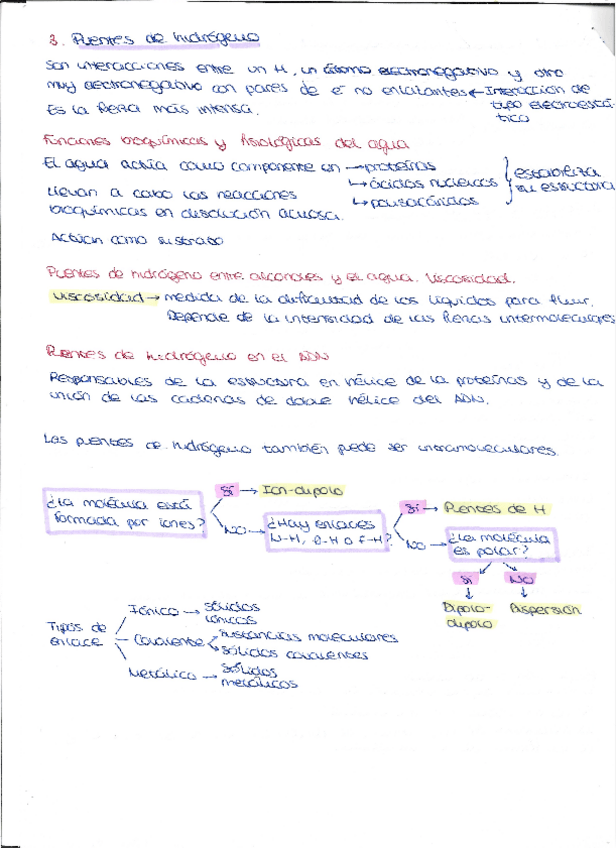 3. Puentes de hidrógeno
Son interacciones entre un H, un átomo electronegativo y otro
muy electronegativo con pares de e⁻ no enlazantes ← Interacción de
tipo electroestá-
tico
Es la fuerza más intensa.
Funciones bioquímicas y fisiológicas del agua
El agua actúa como componente en → proteínas
↳ ácidos nucleicos
↳ polisacáridos
estabiliza
su estructura
Llevan a cabo las reacciones
bioquímicas en disolución acuosa.
Actúan como sustrato
Puentes de hidrógeno entre alcoholes y el agua. Viscosidad.
Viscosidad → medida de la dificultad de los líquidos para fluir.
Depende de la intensidad de las fuerzas intermoleculares
Puentes de hidrógeno en el ADN
Responsables de la estructura en hélice de la proteínas y de la
unión de las cadenas de doble hélice del ADN.
Los puentes de hidrógeno también puede ser intramoleculares.
¿La molécula está
formada por iones?
Sí → Ion-dipolo
NO → ¿Hay enlaces
N-H, O-H o F-H?
Sí → Puentes de H
NO → ¿La molécula
es polar?
Sí
NO
Dipolo-
dipolo
Dispersión
Tipos de
enlace
Iónico → sólidos
iónicos
Covalente
sustancias moleculares
sólidos covalentes
Metálico → sólidos
metálicos